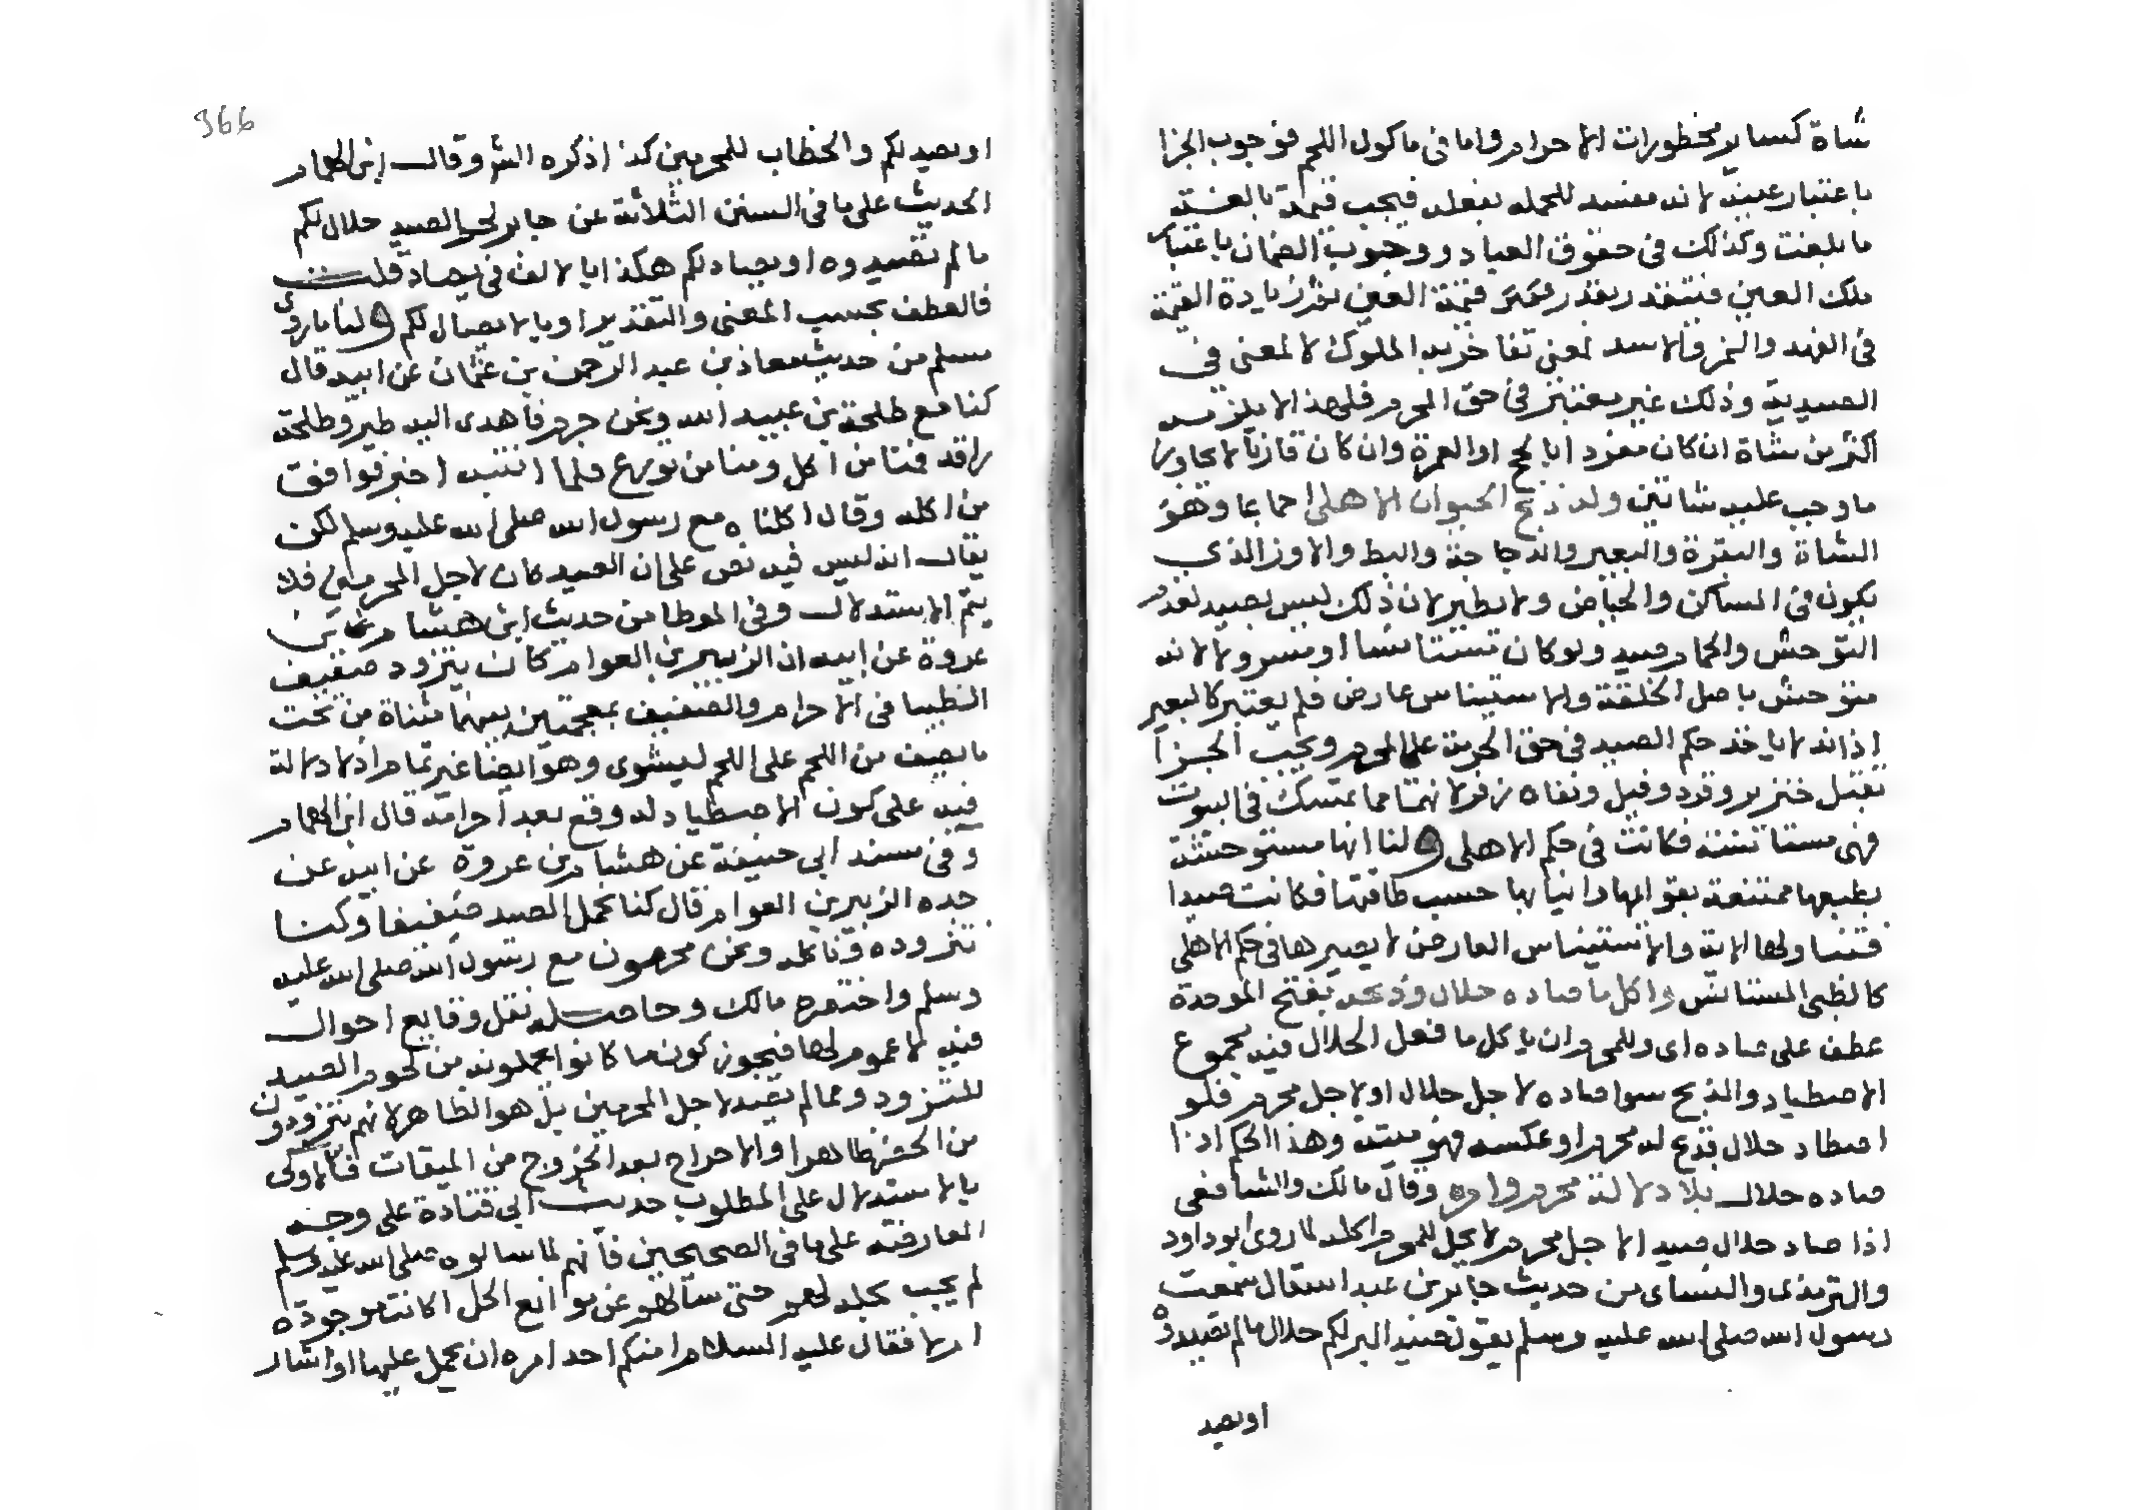 شاة كساير محظورات الاحرام واما فى ماكول اللحم فوجوب الجزا
باعتبار عينه لانه مفسد للحمه بفعله فيجب قيمة بالغة
ما بلغت وكذلك فى حقوق العباد ووجوب الضمان باعتبار
ملك العين فيتقدر بقدر قيمة العين زيادة القيمة
فى الفهد والنمر والاسد لمعنى تفاخر به الملوك لا لمعنى فى
الصيدية وذلك غير معتبر فى حق المحرم فلهذا لا يلزمه
اكثر من شاة ان كان مفردا بالحج او العمرة وان كان قارنا لا يجاوز
ما وجب عليه شاتين وله ذبح الحيوان الاهلى اجماعا وهو
الشاة والبقرة والبعير والدجاجة والبط والاوز الذي
يكون فى المساكن والحياض ولا يطير لان ذلك ليس بصيد لعدم
التوحش والحمام صيد ولو كان مستانسا او مسرولا لانه
متوحش باصل الخلقة والاستيناس عارض فلم يعتبر كالبعير
اذا ند لا ياخذ حكم الصيد فى حق الحرمة على المحرم ويجب الجزا
بقتل خنزير وقرد وفيل ونفاه زفر لانهما مما يمسك فى البيوت
فهى مستانسة فكانت فى حكم الاهلى ولنا انها مستوحشة
بطبعها ممتنعة بقوايمها وانيابها حسب طاقتها فكانت صيدا
فتناولها الاية والاستيناس العارض لا يصيرها فى حكم الاهلى
كالظبى المستانس واكل ما صاده حلال وذبحه بفتح الموحدة
عطف على صاده اى وللمحرم ان ياكل ما فعل الحلال فيه مجموع
الاصطياد والذبح سوا صاده لاجل حلال او لاجل محرم فلو
اصطاد حلال فذبح له محرم او عكسه فهو ميتة وهذا الحكم اذا
صاده حلال بلا دلالة محرم وامره وقال مالك والشافعى
اذا صاد حلال صيدا لاجل محرم لا يحل للمحرم اكله لما روى ابو داود
والترمذى والنساى من حديث جابر بن عبد الله قال سمعت
رسول الله صلى الله عليه وسلم يقول صيد البر لكم حلال ما لم تصيدوه
او يصيد
366
او يصيد لكم والخطاب للمحرمين كذا ذكره الش وقال ابن الهمام
الحديث على ما فى السنن الثلاثة عن جابر لحم الصيد حلال لكم
ما لم تصيدوه او يصاد لكم هكذا بالالف فى يصاد قلت
فالعطف بحسب المعنى والتقدير او بالايصال لكم ولنا ما روى
مسلم من حديث معاذ بن عبد الرحمن بن عثمان عن ابيه قال
كنا مع طلحة بن عبيد الله ونحن حرم فاهدى اليه طير وطلحة
راقد فمنا من اكل ومنا من تورع فلما انتبه اخبر فوافق
من اكله وقال اكلناه مع رسول الله صلى الله عليه وسلم لكن
يقال انه ليس فيه نص على ان الصيد كان لاجل المحرم فلا
يتم الاستدلال وفى الموطا من حديث هشام بن
عروة عن ابيه ان الزبير بن العوام كان يتزود صفيف
الظبا فى الاحرام والصفيف بمعجمتين بينهما مثناة من تحت
ما يصف من اللحم على اللحم ليشوى وهو ايضا غير تمام اذ لا دلالة
فيه على كون الاصطياد له وقع بعد احرامه قال ابن الهمام
وفى مسند ابى حنيفة عن هشام بن عروة عن ابيه عن
جده الزبير بن العوام قال كنا نحمل الصيد صفيفا وكنا
نتزوده وناكله ونحن محرمون مع رسول الله صلى الله عليه
وسلم واختصره مالك وحاصله نقل وقايع احوال
فيه لا عموم لها فيجوز كون ما كانوا يحملونه من لحوم الصيد
للتزود مما لم يصد لاجل المحرمين بل هو الظاهر لانهم يتزودون
من الحضر ظاهرا والاحرام بعد الخروج من الميقات فالاولى
بالاستدلال على المطلوب حديث ابى قتادة على وجه
المعارضة على ما فى الصحيحين فانهم لما سالوه صلى الله عليه وسلم
لم يجب بحله لهم حتى سالهم عن موانع الحل اكانت موجودة
ام لا فقال عليه السلام امنكم احد امره ان يحمل عليها او اشار